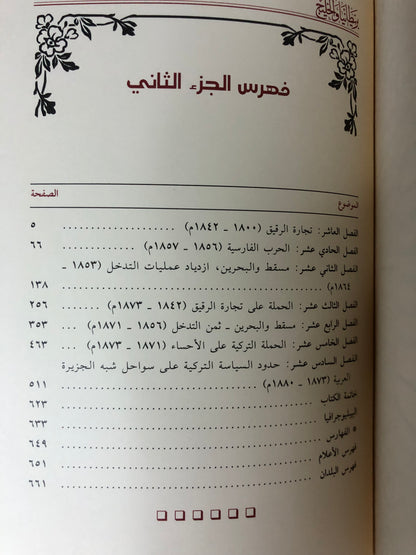 بريطانيا والخليج
فهرس الجزء الثاني
الموضوع الصفحة
الفصل العاشر: تجارة الرقيق (١٨٠٠ ـ ١٨٤٢م) ٥
الفصل الحادي عشر: الحرب الفارسية (١٨٥٦ ـ ١٨٥٧م) ٦٦
الفصل الثاني عشر: مسقط والبحرين، ازدياد عمليات التدخل (١٨٥٣ ـ
١٨٦٤م) ١٣٨
الفصل الثالث عشر: الحملة على تجارة الرقيق (١٨٤٢ ـ ١٨٧٣م) ٢٥٦
الفصل الرابع عشر: مسقط والبحرين ـ ثمن التدخل (١٨٥٦ ـ ١٨٧١م) ٣٥٣
الفصل الخامس عشر: الحملة التركية على الأحساء (١٨٧١ ـ ١٨٧٣م) ٤٦٣
الفصل السادس عشر: حدود السياسة التركية على سواحل شبه الجزيرة
العربية (١٨٧٣ ـ ١٨٨٠م) ٥١١
خاتمة الكتاب ٦٢٣
الببليوجرافيا ٦٣٣
* الفهارس ٦٤٩
فهرس الأعلام ٦٥١
فهرس البلدان ٦٦١